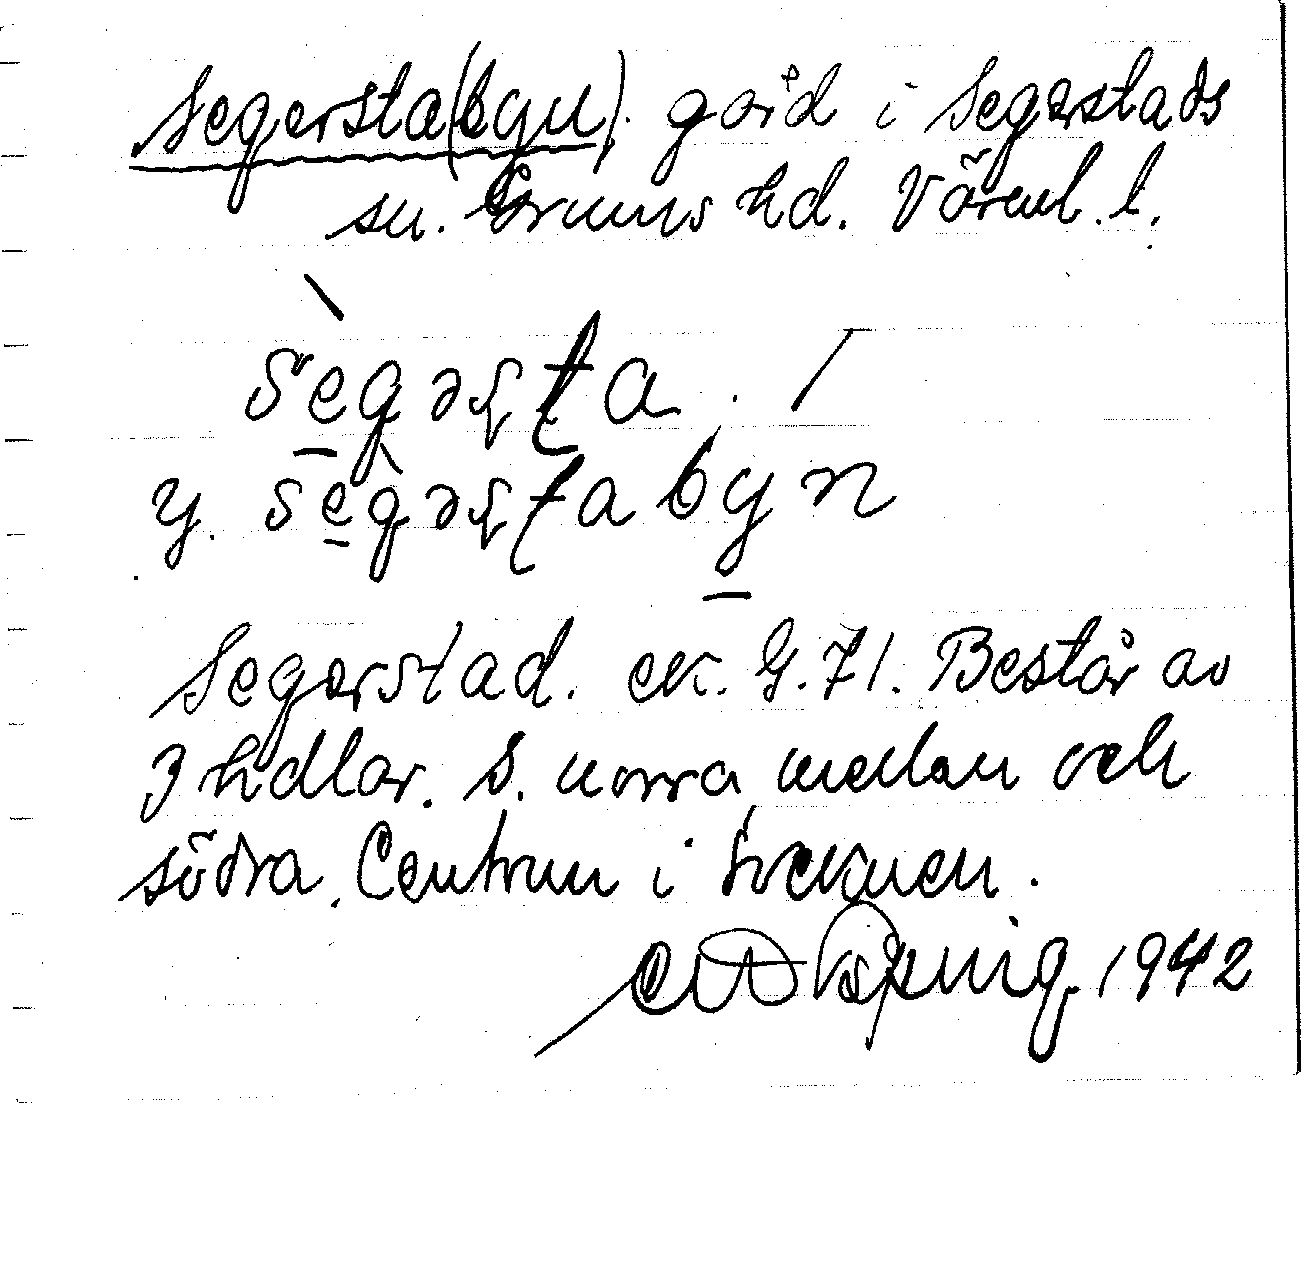 Segersta(byn) gård i Segerstads
sn. Grums hd. Värml. l.
sègərsta. /
y. sègərstabyn
Segerstad. ek. G. 71. Består av
3 hdlar. S. norra, mellan och
södra. Centrum i socknen.
1942